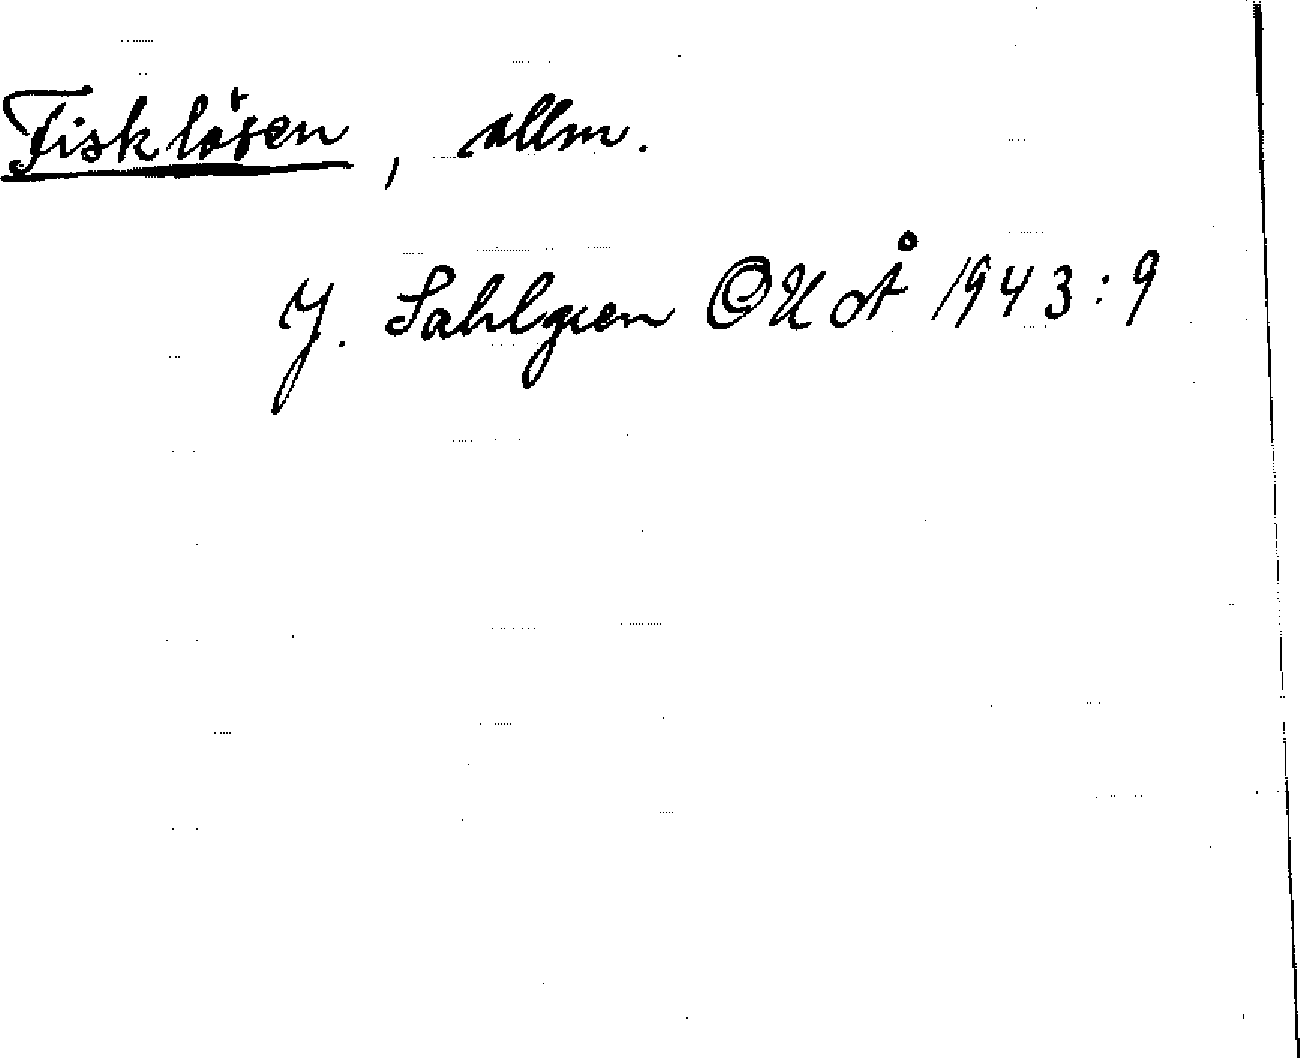 Fisklösen, allm.
J. Sahlgren OUoÅ 1943:9